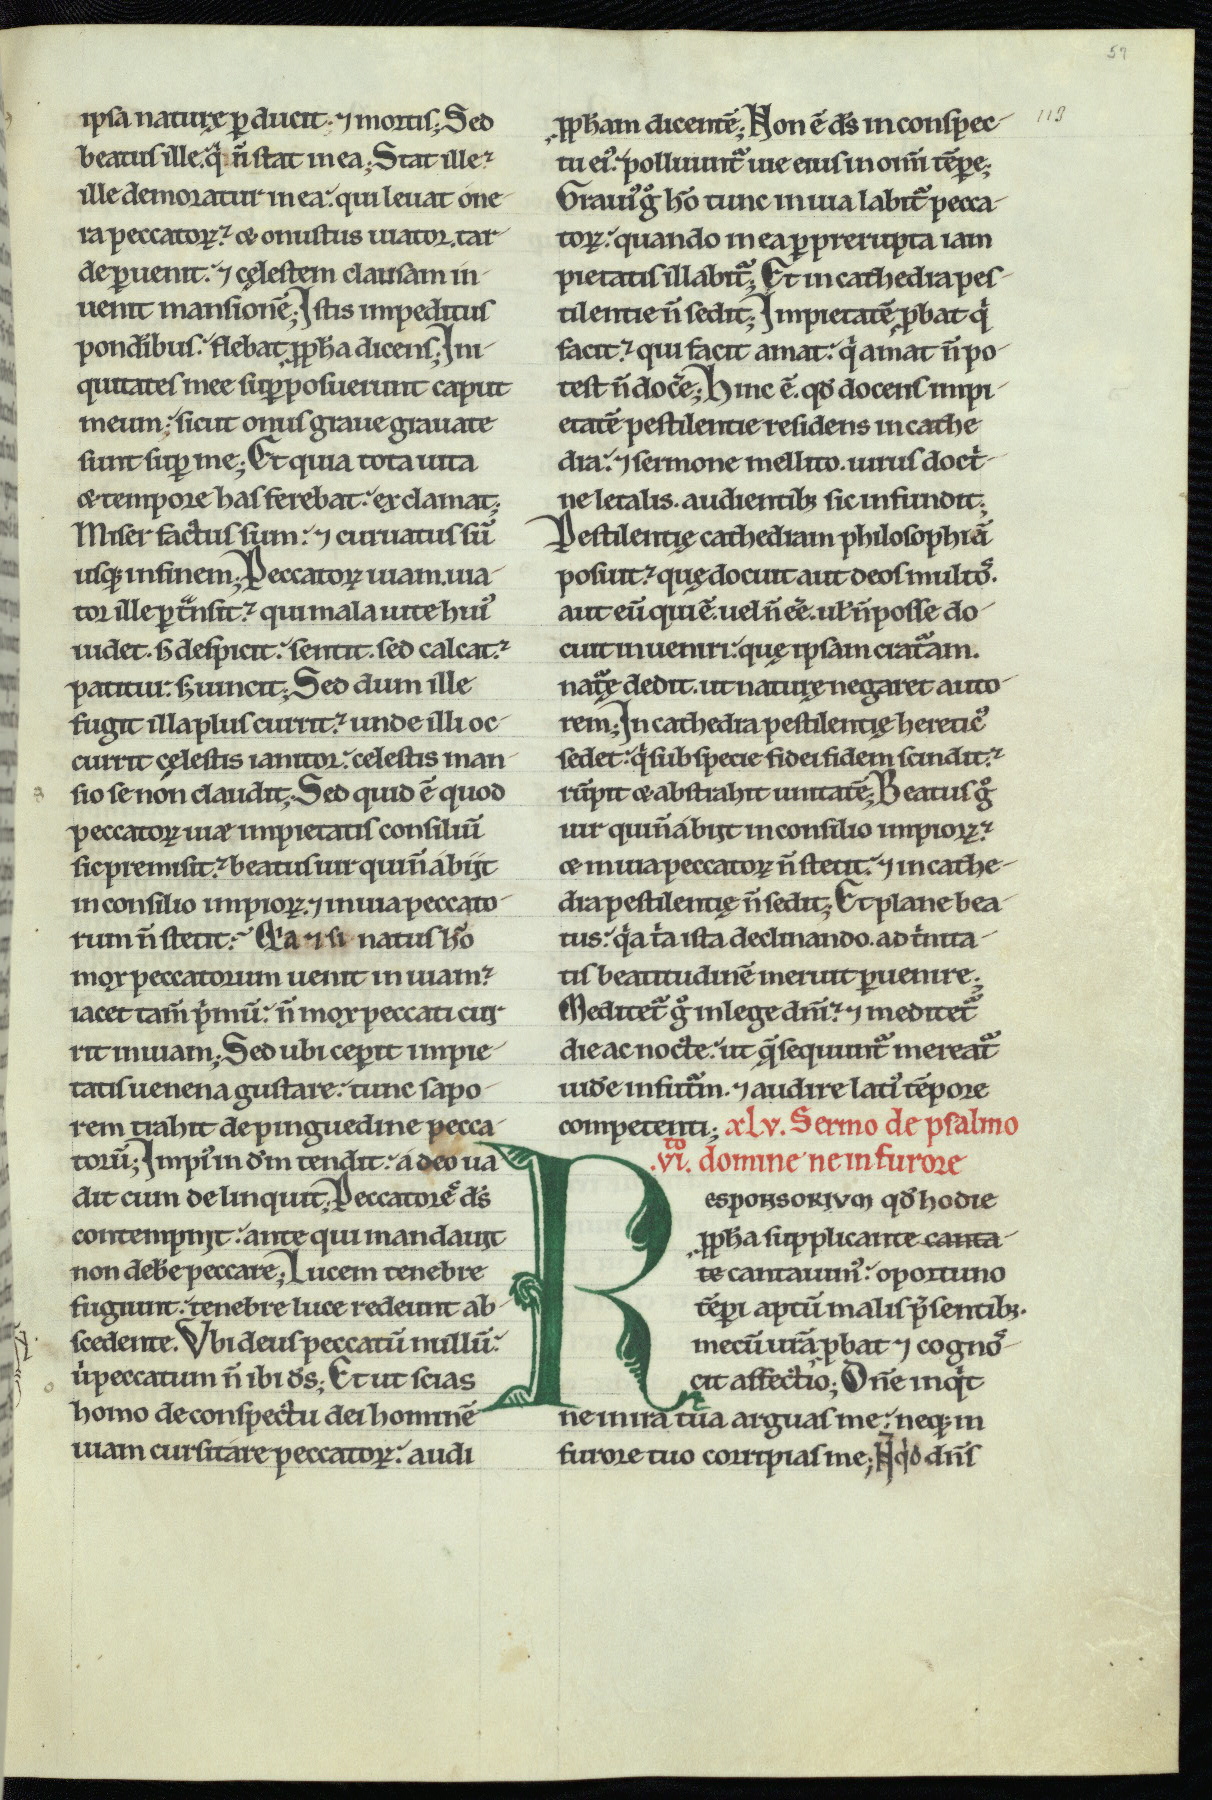 57
118
ipsa naturę ꝑducit· ⁊ mortis; Sed
beatus ille· q̇ ñ stat in ea; Stat ille·
ille demoratur in ea· qui leuat one-
ra peccatoꝝ· & onustus uiator· tar-
de ꝑuenit· ⁊ cęlestem clausam in-
uenit mansionē; Istis impeditus
pondibus· flebat ꝓpha dicens; Ini-
quitates mee suꝑposuerunt caput
meum· sicut onus graue grauate
sunt suꝑ me; Et quia tota uita
& tempore has ferebat· exclamat;
Miser factus sum· ⁊ curuatus sū
usq; in finem; Peccatoꝝ uiam· uia-
tor ille ꝑtͣnsit· qui mala uite huiꝰ
uidet· s; despicit· sentit· sed calcat·
patitur· s; uincit; Sed dum ille
fugit illa plus currit· unde illi oc-
currit cęlestis ianitor· celestis man-
sio se non claudit; Sed quid ē quod
peccatoꝝ uiæ impietatis consiliū
sic premisit· beatus uir qui ñ abijt
in consilio impioꝝ· ⁊ in uia peccato-
rum ñ stetit· Qͥa ⁊ si natus hō
mox peccatorum uenit in uiam·
iacet tam̄ pͥmū· ñ mox peccati cur-
rit in uiam; Sed ubi ceperit impie-
tatis uenena gustare· tunc sapo-
rem trahit de pinguedine pecca-
torū; Impiꝰ in dm̄ tendit· a deo ua-
dit cum delinquit; Peccatore͂ ds̄
contempnit· ante qui mandauit
non debe peccare; Lucem tenebre
fugiunt· tenebre luce redeunt ab-
scedente. Vbi deus peccatū nullū·
u̇ peccatum ñ ibi ds̄; Et ut scias
homo de conspectu dei hominē
uiam cursitare peccatoꝝ· audi
ꝓpham dicentē; Non ē ds̄ in conspec-
tu eiꝰ· polluunt͛ uie eius in om̄i tēꝑe;
Grauiꝰ gͦ hō tunc in uia labit͛ pecca-
toꝝ· quando in ea ꝑ prerupta iam
pietatis illabit͛; Et in cathedra pes-
tilentie ñ sedit; Impietatē ꝓbat qͥ
facit· qui facit amat· qͥ amat ñ po-
test ñ docēe; Hinc ē· qd̄ docens impi-
etatē pestilentie residens in cathe
dra· ⁊ sermone mellito· uirus doctͥ-
ne letalis· audientib; sic infundit;
Pestilentię cathedram philosophia
posuit· quę docuit aut deos multos·
aut eū qui ē· uel ñ eē· ul̄ ñ posse do-
cuit inueniri· quę ipsam creat͛am·
nat͛ę dedit· ut naturę negaret auto-
rem; In cathedra pestilentię hereticꝰ
sedet· qͥ sub specie fidei fidem scindit·
rūpit & abstrahit unitatē; Beatus gͦ
uir qui ñ abijt in consilio impioꝝ·
& in uia peccatoꝝ ñ stetit· ⁊ in cathe-
dra pestilentię ñ sedit; Et plane bea-
tus· qͥa tͥa ista declinando· ad tͥnita-
tis beatitudinē meruit ꝑuenire;
Meditet͛ gͦ in lege dn̄i· ⁊ meditet͛
die ac nocte· ut q̄ sequunt͛ mereat͛
uidēe in fut͛m· ⁊ audire latiꝰ tēpore
competenti; xlv. Sermo de psalmo
.vi.to domine ne in furore
Responsorivm qd̄ hodie
ꝓpha supplicante canta-
te cantauimꝰ· oportuno
tēꝑi aptū malis p̄sentib;·
mecū ur̄a ꝓbat ⁊ cognos-
cit affectio; Dn̄e inqͥt
ne in ira tua arguas me· neq; in
furore tuo corripias me; N qd̄ dn̄s